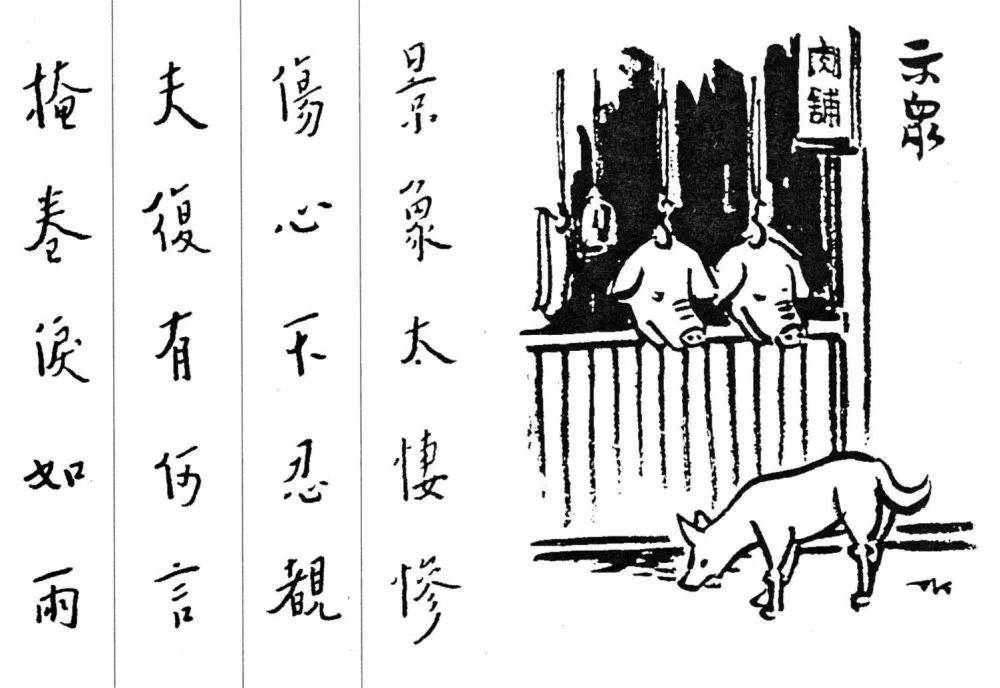 示眾
肉舖
TK
景象太悽慘
傷心不忍覩
夫復有何言
掩卷淚如雨